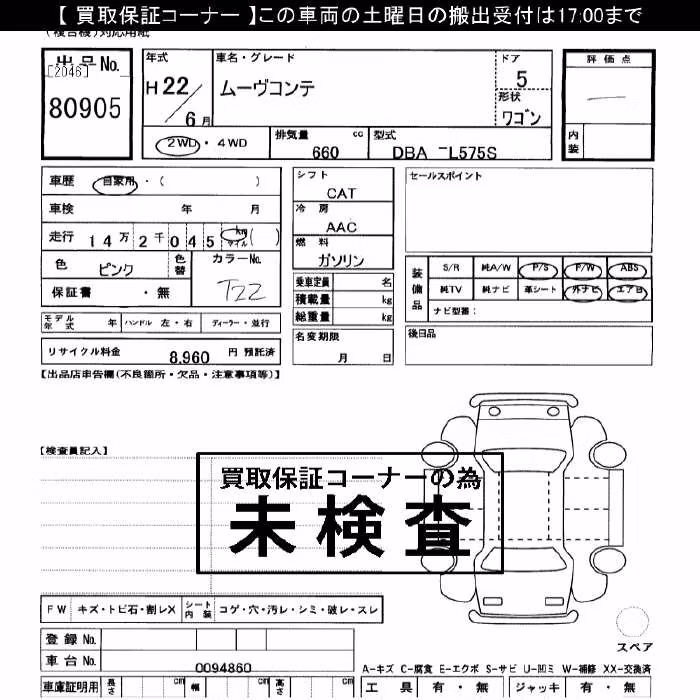 【 買取保証コーナー 】この車両の土曜日の搬出受付は17:00まで
(複合機)対応用紙
出品No.
[2046]
80905
年式
H 22/6月
車名・グレード
ムーヴコンテ
ドア
5
形状
ワゴン
評価点
内装
2WD・4WD
排気量
660
cc
型式
DBA -L575S
車歴
自家用・( )
車検 年 月
走行 14万2千045 km マイル ( )
色 ピンク 色替
カラーNo.
T22
保証書 ・ 無
シフト
CAT
冷房
AAC
燃料
ガソリン
乗車定員 名
積載量 kg
総重量 kg
名変期限
月 日
セールスポイント
装備品
S/R 純A/W P/S P/W ABS
純TV 純ナビ 革シート 外ナビ エアB
ナビ型番:
後日品
モデル年式 年 ハンドル 左・右 ディーラー・並行
リサイクル料金 8,960 円 預託済
【出品店申告欄(不良箇所・欠品・注意事項等)】
【検査員記入】
買取保証コーナーの為
未検査
FW キズ・トビ石・割レX シート内装 コゲ・穴・汚レ・シミ・破レ・スレ
スペア
登録No.
車台No. 0094860
A-キズ C-腐食 E-エクボ S-サビ U-凹ミ W-補修 XX-交換済
車庫証明用 長さ cm 幅 cm 高さ cm
工具 有・無 ジャッキ 有・無